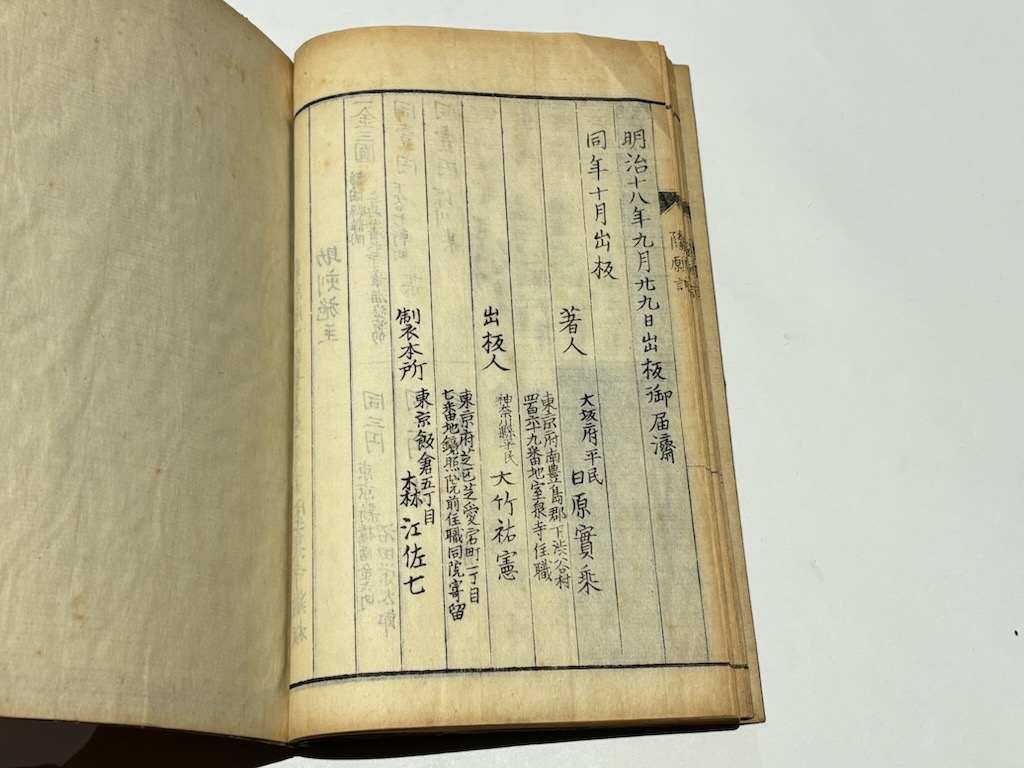 明治十八年九月廿九日出板御届濟
同年十月出板
著人
大坂府平民
日原實乘
東京府南豊島郡下渋谷村
四百六十九番地室泉寺住職
出板人
神奈縣平民
大竹祐憲
東京府芝区芝愛宕町一丁目
七番地鏡照院前住職同院寄留
製本所
東京飯倉五丁目
森江佐七